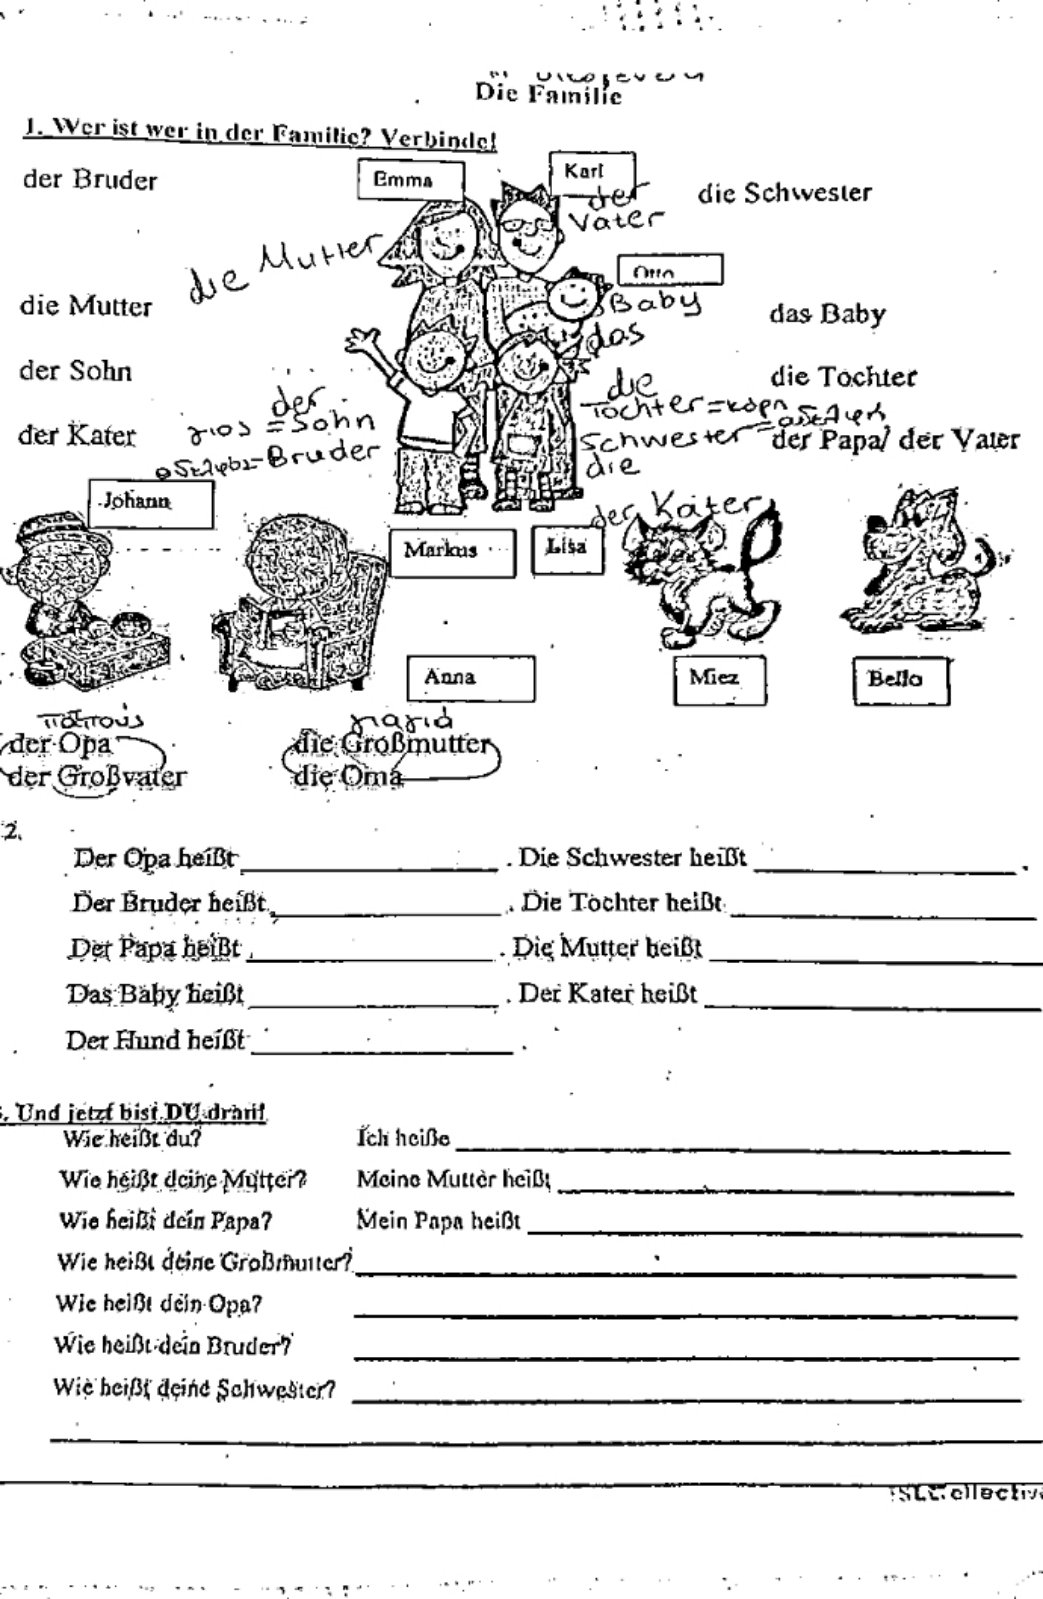 Die Familie
1. Wer ist wer in der Familie? Verbinde!
der Bruder
Emma
Karl
die Schwester
der
Vater
die Mutter
Otto
die Mutter
Baby
das
das Baby
der Sohn
die
die Tochter
der
Tochter = κόρη
γιος = Sohn
der Kater
Schwester = αδελφή
der Papa/ der Vater
αδελφός = Bruder
die
Johann
der Kater
Markus
Lisa
Anna
Miez
Bello
παππούς
γιαγιά
der Opa
die Großmutter
der Großvater
die Oma
2.
Der Opa heißt ____________ . Die Schwester heißt ____________ .
Der Bruder heißt ____________ . Die Tochter heißt ____________
Der Papa heißt ____________ . Die Mutter heißt ____________
Das Baby heißt ____________ . Der Kater heißt ____________
Der Hund heißt ____________ .
. Und jetzt bist DU dran!
Wie heißt du? Ich heiße ____________
Wie heißt deine Mutter? Meine Mutter heißt ____________
Wie heißt dein Papa? Mein Papa heißt ____________
Wie heißt deine Großmutter? ____________
Wie heißt dein Opa? ____________
Wie heißt dein Bruder? ____________
Wie heißt deine Schwester? ____________
iSLCollective